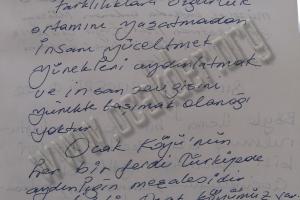 farklılıkları özgürlük
ortamını yaşatmadan
insanı yüceltmek
yürekleri aydınlatmak
ve insan sevgisini
yürekte taşımak olanağı
yoktur
Ocak Köyü'nün
her bir ferdi Türkiyede
aydınlığın meşalesidir
Ocak köyümüz